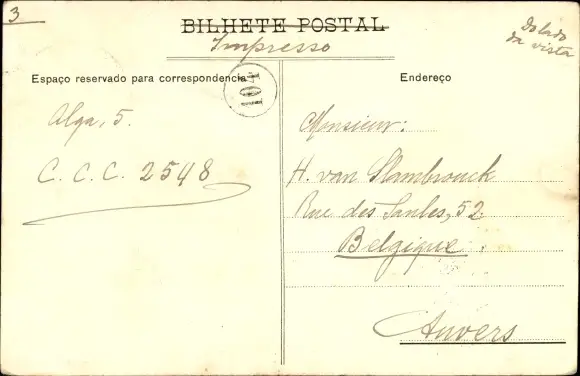 3
BILHETE POSTAL
Impresso
Do lado
da vista
Espaço reservado para correspondencia
104
Endereço
Alga, 5.
C. C. C. 2548
Monsieur:
H. van Slambrouck
Rue des Saules, 52
Belgique
Anvers